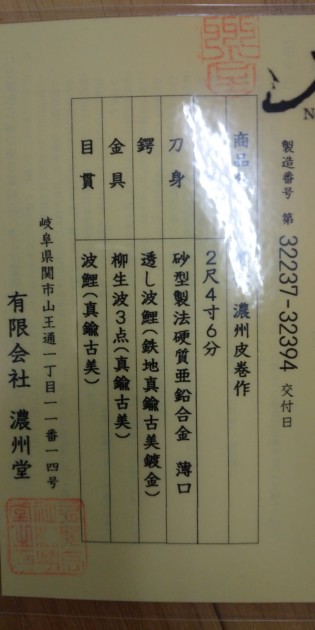 製造番号 第 32237-32394 交付日
商品 濃州皮巻作
2尺4寸6分
刀身 砂型製法硬質亜鉛合金 薄口
鍔 透し波鯉(鉄地真鍮古美鍍金)
金具 柳生波3点(真鍮古美)
目貫 波鯉(真鍮古美)
岐阜県関市山王通一丁目一一番一四号
有限会社 濃州堂